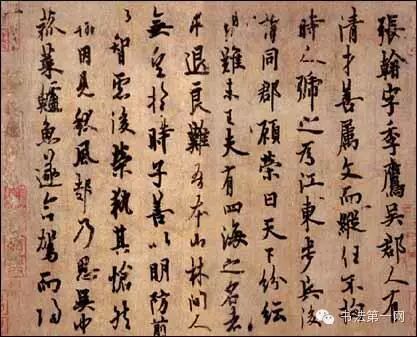 張翰字季鷹吳郡人有
清才善屬文而縱任不拘
時人號之為江東步兵後
謂同郡顧榮曰天下紛紜
禍難未已夫有四海之名者
求退良難吾本山林間人
無望於時子善以明防前
以智慮後榮執其愴然
翰因見秋風起乃思吳中
菰菜鱸魚遂命駕而歸
书法第一网